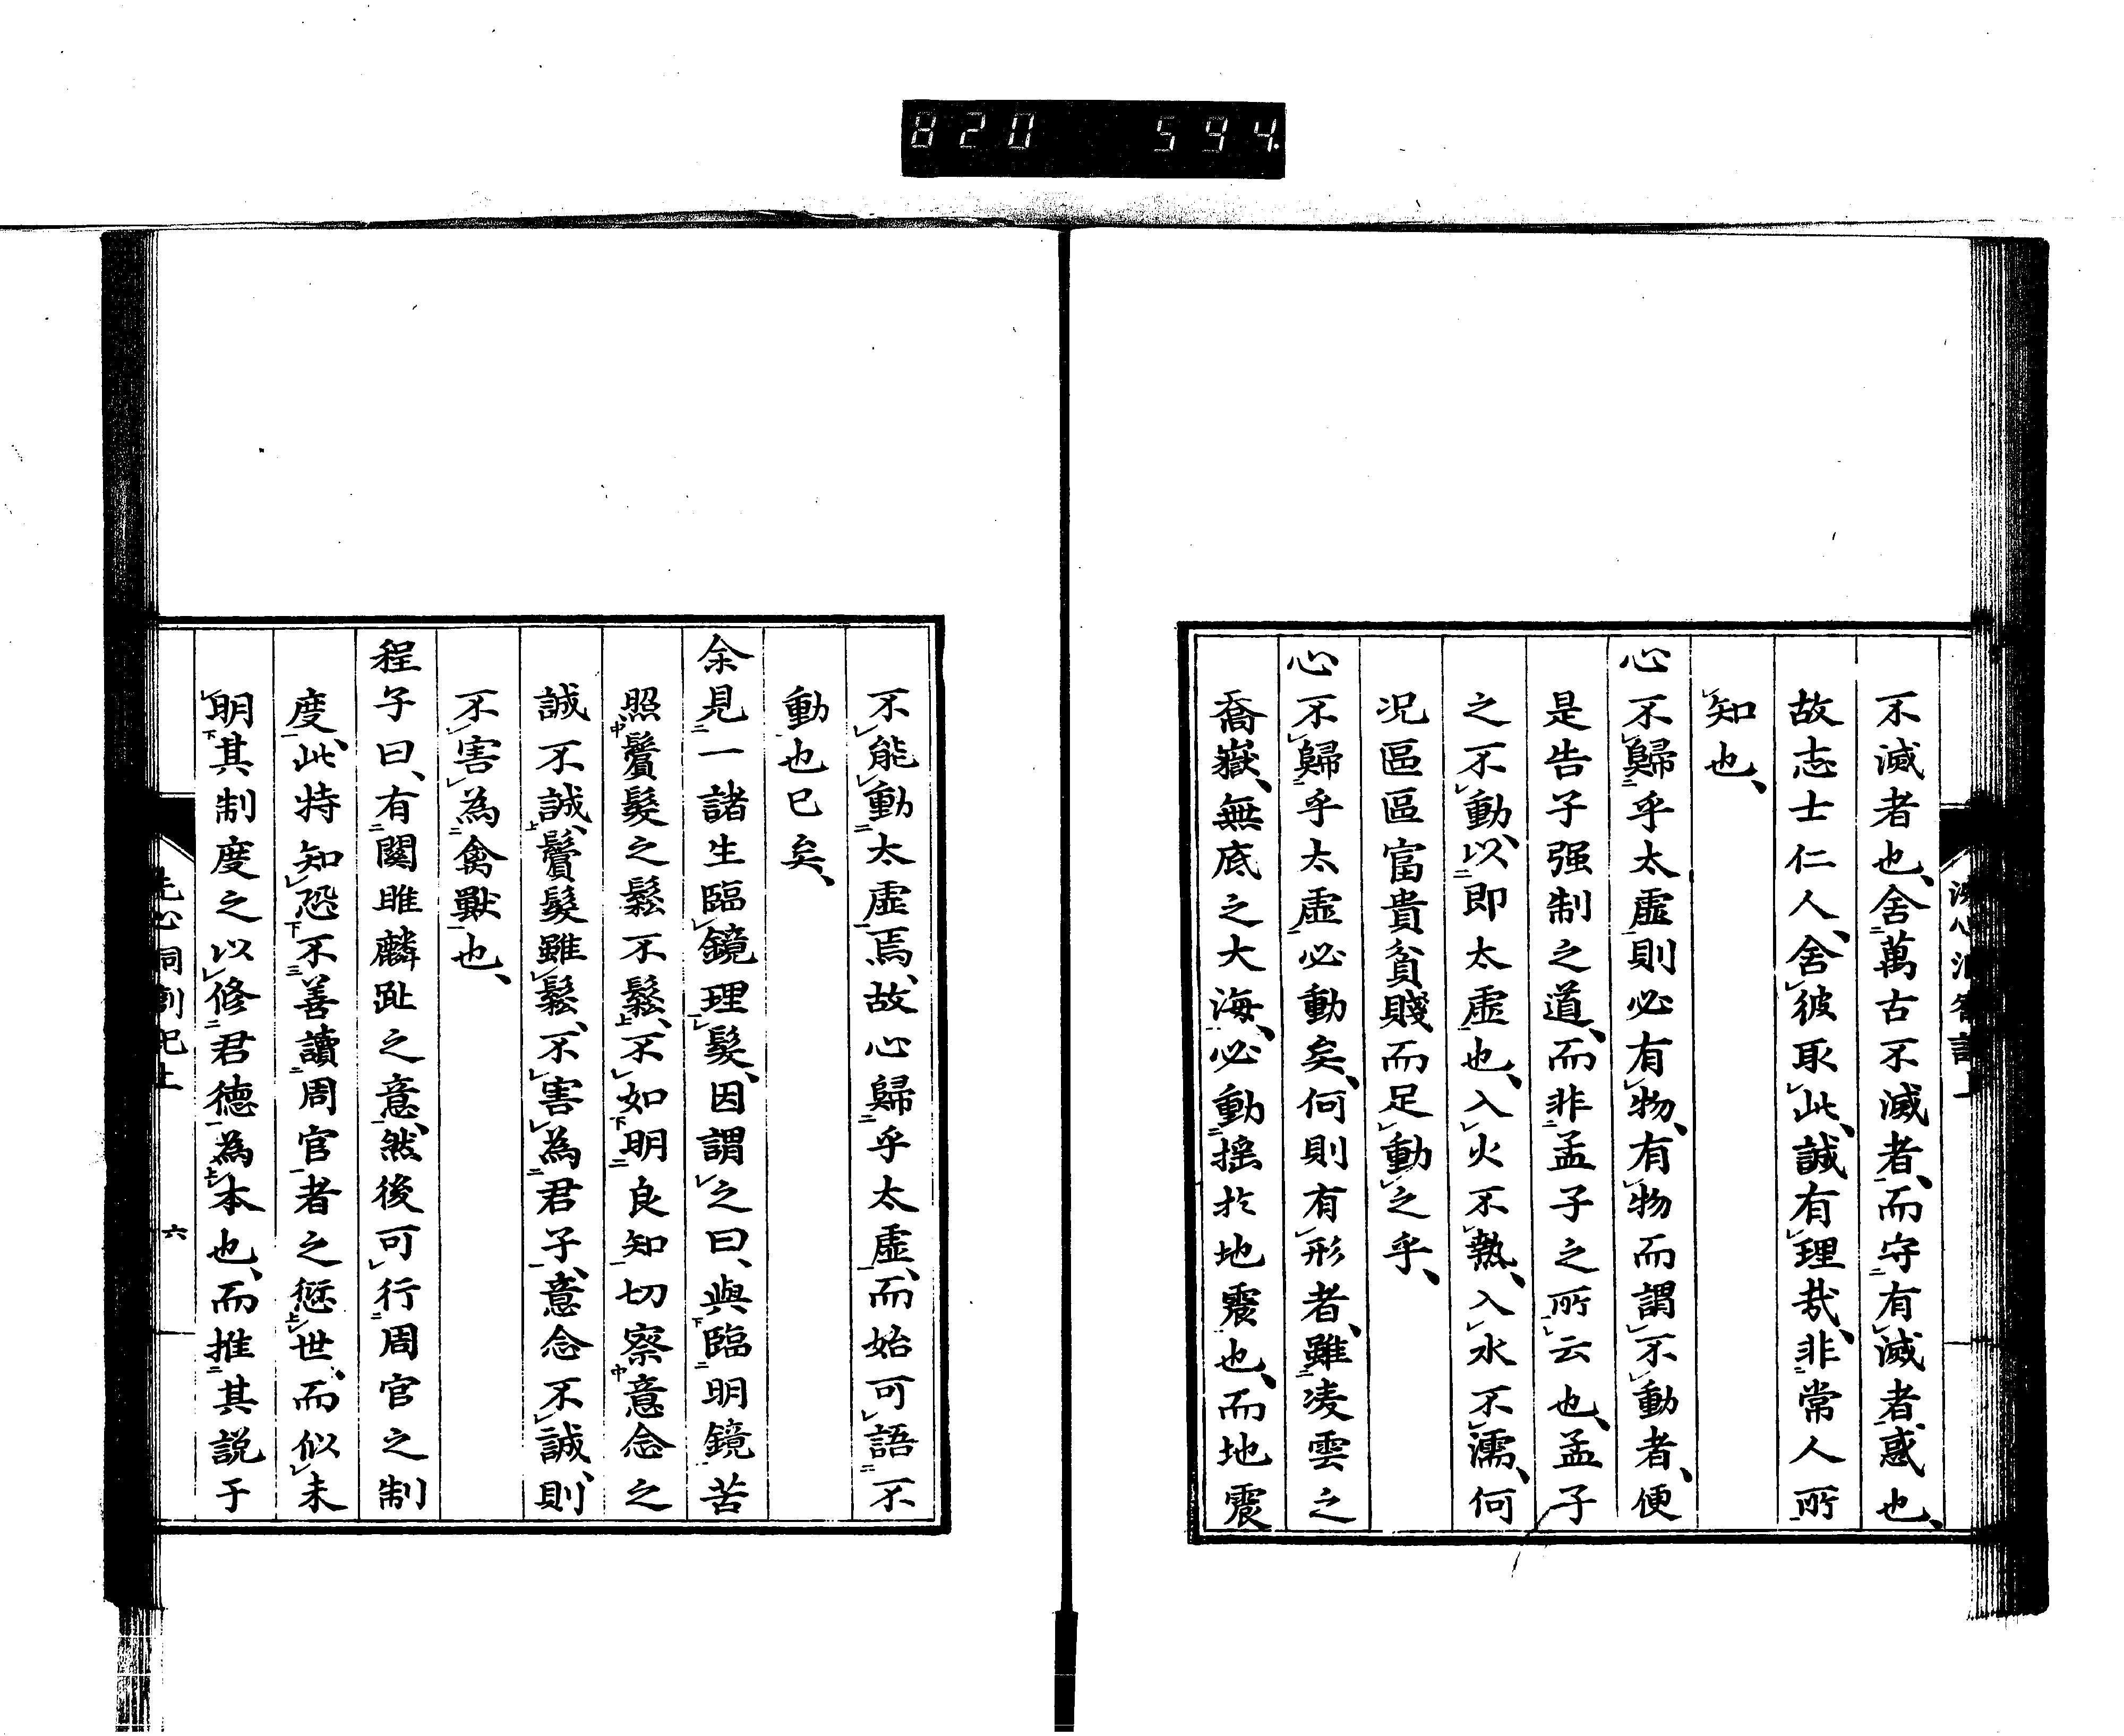 820 594
不滅者也、舍萬古不滅者、而守有滅者、惑也、
故志士仁人、舍彼取此、誠有理哉、非常人所
知也、
心不歸乎太虛則必有物、有物而謂不動者、便
是告子强制之道、而非孟子之所云也、孟子
之不動、以即太虛也、入火不熱、入水不濡、何
況區區富貴貧賤而足動之乎、
心不歸乎太虛必動矣、何則有形者、雖凌雲之
喬嶽、無底之大海、必動搖於地震也、而地震
不能動太虛焉、故心歸乎太虛、而始可語不
動也已矣、
余見一諸生臨鏡理髮、因謂之曰、與臨明鏡苦
照鬢髮之鬆不鬆、不如明良知切察意念之
誠不誠、鬢髮雖鬆、不害為君子、意念不誠、則
不害為禽獸也、
程子曰、有關雎麟趾之意、然後可行周官之制
度、此特知恐不善讀周官者之愆世、而似未
明其制度之以修君德為本也、而推其説于
洗心洞劄記上
六